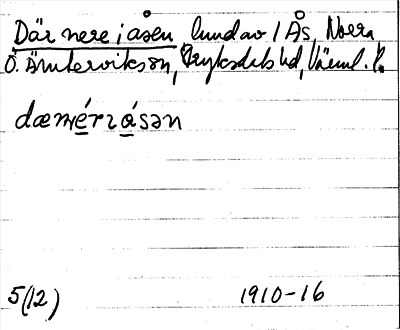 Där nere i åsen lund av / Ås, Norra
Ö. Ämtervik sn, Fryksdals hd, Värml. l.
dæmérɪásən
5(12) 1910-16